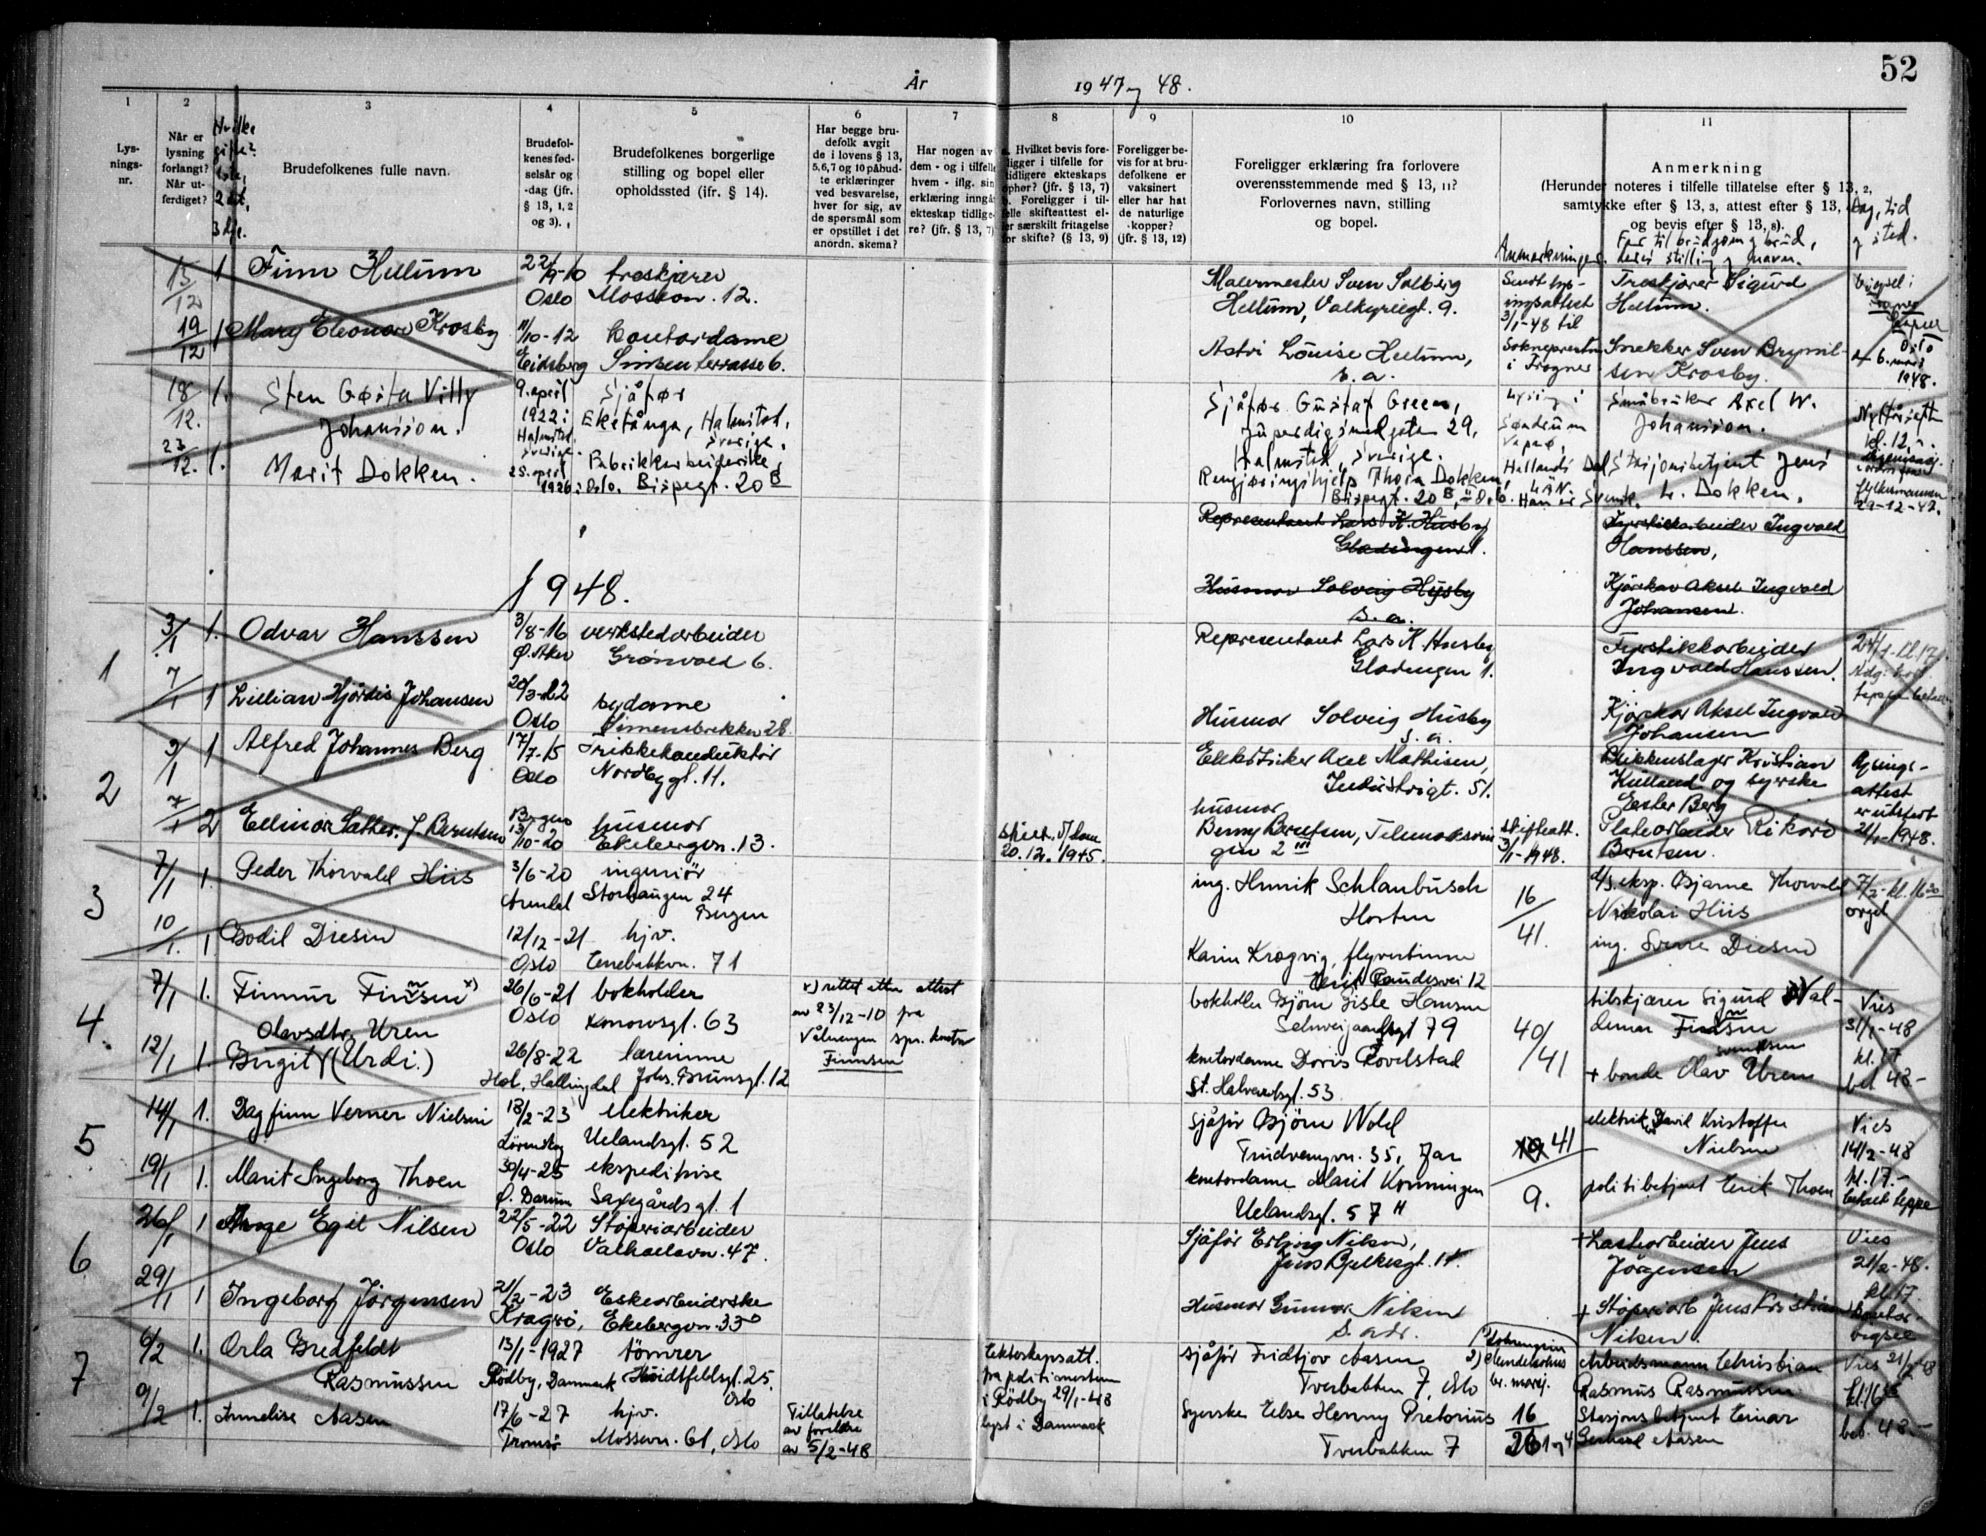 52
År
1947 og 48.
1 2 3 4 5 6 7 8 9 10 11
Lys-
nings-
nr.
Når er
lysning
forlangt?
Når ut-
ferdiget?
Brudefolkenes fulle navn.
Brudefol-
kenes fød-
selsår og
-dag (jfr.
§ 13, 1, 2
og 3).
Brudefolkenes borgerlige
stilling og bopel eller
opholdssted (ifr. § 14).
Har begge bru-
defolk avgit
de i lovens § 13,
5,6,7 og 10 påbud-
te erklæringer
ved besvarelse,
hver for sig, av
de spørsmål som
er opstillet i det
anordn. skema?
Har nogen av
dem - og i tilfelle
hvem - iflg. sin
erklæring inngå
ekteskap tidlige-
re? (jfr. § 13, 7)
Hvilket bevis fore-
ligger i tilfelle for
tidligere ekteskaps
ophør? (jfr. § 13, 7)
Foreligger i til-
felle skifteattest el-
ler særskilt fritagelse
for skifte? (§ 13, 9)
Foreligger be-
vis for at bru-
defolkene er
vaksinert
eller har hat
de naturlige
kopper?
(jfr. § 13, 12)
Foreligger erklæring fra forlovere
overensstemmende med § 13, 11?
Forlovernes navn, stilling
og bopel.
Anmerkning
(Herunder noteres i tilfelle tillatelse efter § 13, 2,
samtykke efter § 13, 3, attest efter § 13,
og bevis efter § 13, 8).
Anmerkninger.
Far til brudgom og brud,
deres stilling og navn.
Dag, tid
og sted.
15/12 1 Finn Hellum 22/9-10 Oslo
Mosseveien 12.
Malermester Sven Solberg
Hellum, Valkyriegt. 9.
Sendt lys-
ningsattest
3/1-48 til
Soknepresten
i Frogner
Sigurd
Hellum.
19/12 1 Mary Eleonore Krosby 11/10-12 Eidsberg
kontordame
Sinsenterrasse 6.
Astri Louise Hellum,
s. a.
Snekker Sven Brynil-
sen Krosby.
Oslo
6. mars
1948.
18/12. 1. Sten Gøsta Villy
Johansson.
9. april
1922 i
Halmstad,
Sverige.
Sjåfør
Eketånga, Halmstad,
Sverige.
Sjåfør Gustaf Green,
29,
Halmstad, Sverige.
Småbruker Axel W.
Johansson.
23/12. 1. Marit Dokken.
25. april
1926 i Oslo.
Fabrikkarbeiderske,
Bispegt. 20 B
Rengjøringshjelp Thora Dokken,
Bispegt. 20 B, Oslo.
Han er svensk.
Stasjonsbetjent Jens
L. Dokken.
Representant Lars K. Husby
Gladengen 1.
Fyrstikkarbeider Ingvald
Hanssen,
Husmor Solveig Husby
s. a.
Kjørekar Aksel Ingvald
Johansen.
1948.
1 3/1 1. Odvar Hanssen 3/8-16 Ø. Aker
verkstedarbeider
Grønvold 6.
Representant Lars K Husby
Gladengen 1.
Fyrstikkarbeider
Ingvald Hanssen.
7/1 1 Lillian Hjördis Johansen 20/3-22 Oslo
sydame
Simensbrekken 28
Husmor Solveig Husby
s. a.
Kjørekar Aksel Ingvald
Johansen
2 3/1 1 Alfred Johannes Berg 17/7-15 Oslo
Trikkekonduktör
Nordbygt. 11.
Elektriker Axel Mathisen,
Industrigt. 51.
Blikkenslager Kristian
Kulland og syerske
Ester Berg
Lysnings-
attest
er utstedt
21/1-1948.
7/1 2 Ellinor Sæther, f Berntsen
Bergen
13/10-20
husmor
Ekebergvn. 13.
20.12. 1945.
husmor
Benny Berntsen, Telemarksvin
gen 2 III
skifteatt.
3/1-1948.
Platearbeider Rikard
Berntsen.
3 7/1 1. Peder Thorvald Hiis 3/6-20 Arendal
ingeniør
Storhaugen 24
Bergen
ing. Henrik Schlanbusch
Horten
16/41.
Bjarne Thorvald
Nikolai Hiis
7/2-kl. 16 30
orgel
10/1. 1. Bodil Diesen 12/12-21 Oslo
hjv.
Enebakkvn. 71
Karin Kragvig, flyvertinne
12
ing. Sverre Diesen
4. 7/1 1. Finnur Finnsen x) 26/6-21 Oslo
bokholder
Konowsgt. 63
x) rettet etter attest
av 23/12-10 fra
Vålerengen spr. kontor
Finnsen
bokholder Bjørn Gisle Hansen
Schweigaardsgt 79
40/41
tilskjærer Sigurd Val-
demar Finnsen
Vies
31/1-48
kl. 17
bet 48-
12/1 1. Birgit (Urdi.) Olavsdtr. Uren
26/8-22
Hol, Hallingdal
lærerinne
Johs. Brunsgt. 12
kontordame Doris Rovelstad
St. Halvardsgt. 53
+ bonde Olav Svendsen Uren
5. 14/1 1. Dagfinn Verner Nielsen 18/2-23 Lørenskog
elektriker
Uelandsgt. 52
sjåfør Bjørn Wold
Trudvangvn. 35, Jar
41
9.
elektrik. David Kristoffer
Nielsen
Vies
14/2-48
kl. 17.-
19/1 1. Marit Ingeborg Thoen 30/4-25
ekspeditrise
Saxegårdsgt. 1
kontordame Marit Konningen
Uelandsgt. 57 H
politibetjent Erik Thoen
6 26/1 1 Aage Egil Nilsen 22/5-22 Oslo
Støperiarbeider
Valhallavn. 47.
Sjåför Erling Nilsen,
Jens Bjelkesgt. 11.
+ Lastearbeider Jens
Jörgensen
Vies
21/2-48.
kl. 17.
29/1 1 Ingeborg Jörgensen 21/2-23 Kragrø,
Eskearbeiderske
Ekebergvn. 33
Husmor Gunvor Nilsen
s. adr.
+ Støperiarb Jens Kristian
Nilsen.
7 6/2 1. Orla Bredfeldt
Rasmussen
13/1-1927
Rödby, Danmark
tömrer
Huidtfeldtsgt. 25.
Oslo
Ekteskapsatt.
fra politimesteren
i Rödby 29/1-48
lyst i Danmark
sjåfør Fridtjov Aasen
Tverbakken 7, Oslo
1) Lohengrin
2) Mendelsohns
br. marsj.
Arbeidsmann Christian
Rasmus Rasmussen
Vies 21/2 48
kl. 16
9/2 1. Annelise Aasen 17/6-27 Tromsø
hjv.
Mossevn. 61, Oslo
Tillatelse
av foreldre
av 5/2-48
Syerske Else Henny Pretorius
Tverbakken 7
16/26 1 og 4
Stasjons betjent Einar
Gerhard Aasen
bet. 48.-